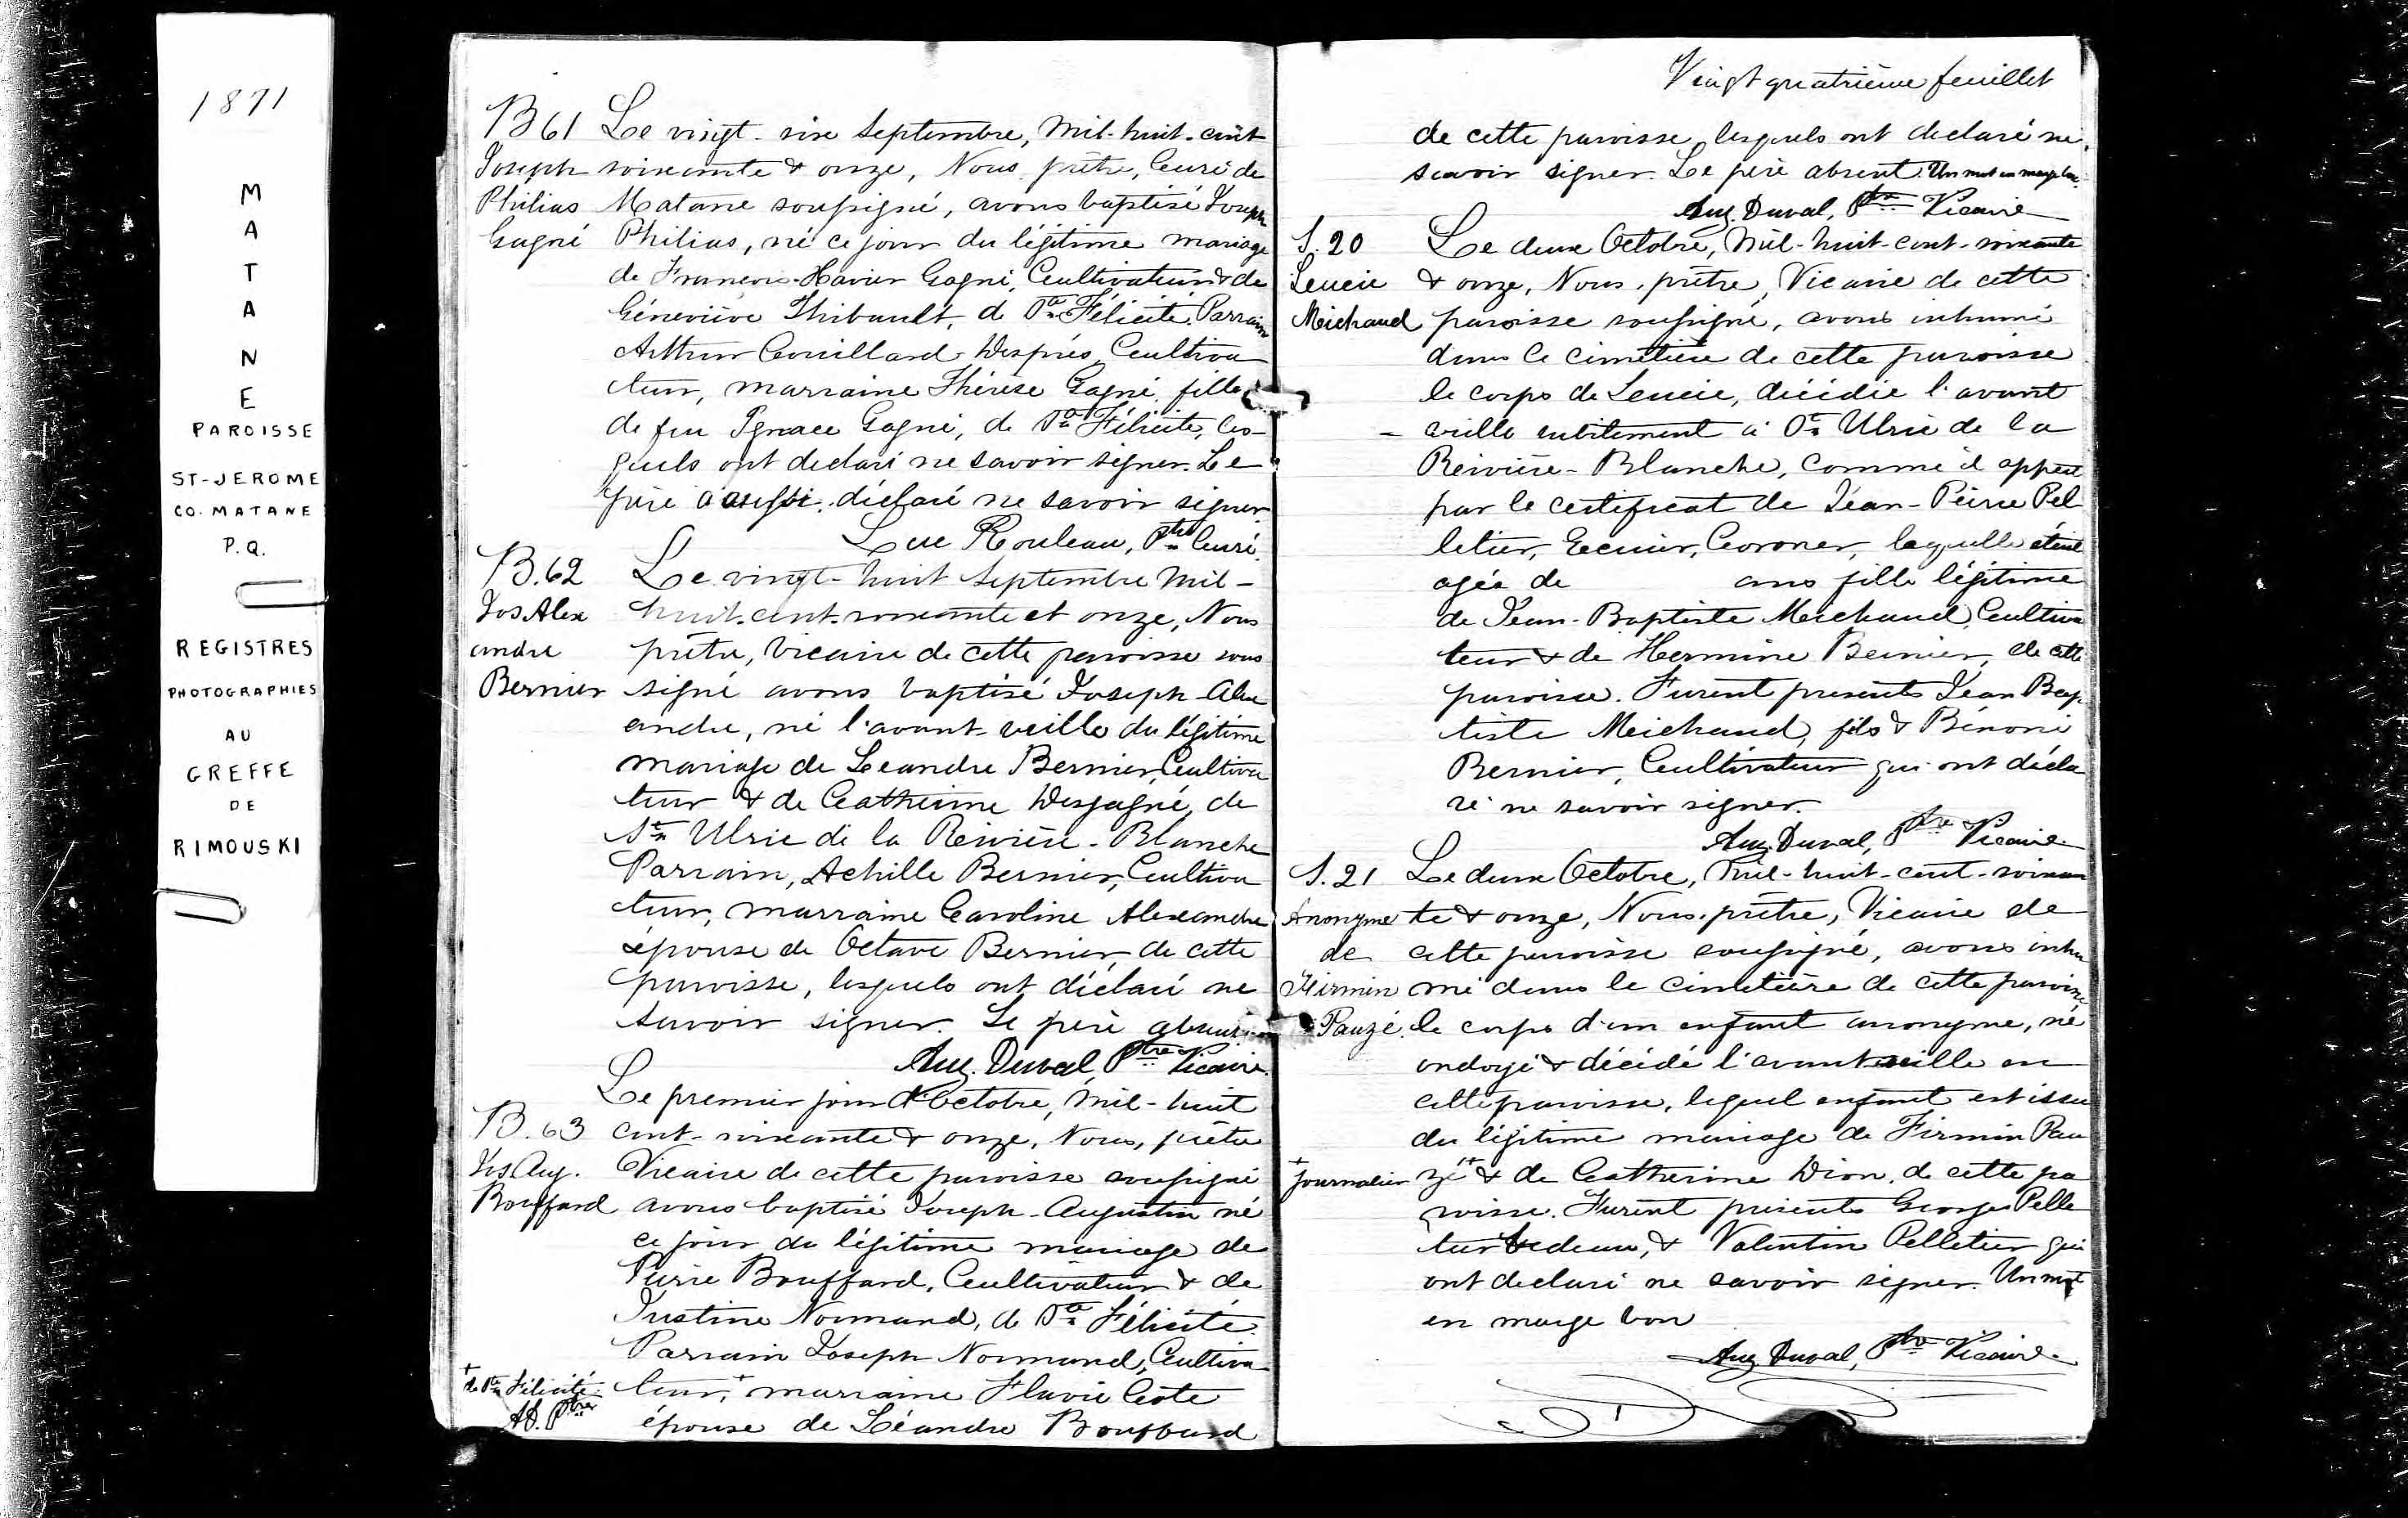 1871
MATANE
PAROISSE
ST-JEROME
CO. MATANE
P.Q.
REGISTRES
PHOTOGRAPHIES
AU
GREFFE
DE
RIMOUSKI
B 61 Le vingt-six Septembre, Mil-huit-cent
Joseph soixante & onze, Nous prêtre, Curé de
Philias Matane soussigné, avons baptisé Joseph
Gagné Philias, né ce jour du légitime mariage
de François-Xavier Gagné, Cultivateur & de
Géneviève Thibault, de Ste Félicité. Parrain
Arthur Couillard Després, Cultiva
teur, marraine Thérèse Gagné, fille
de feu Ignace Gagné, de Ste Félicité, les-
quels ont declaré ne savoir signer. Le
père a aussi déclaré ne savoir signer.
Luc Rouleau, Ptre Curé.
B. 62 Le vingt-huit Septembre Mil-
Jos Alex huit-cent-soixante et onze, Nous
andre prêtre, Vicaire de cette paroisse sous
Bernier signé avons baptisé Joseph-Alex
andre, né l'avant-veille du légitime
mariage de Leandre Bernier, Cultiva
teur & de Catherine Desgagné, de
St Ulric de la Rivière-Blanche
Parrain, Achille Bernier, Cultiva
teur, marraine Caroline Alexandre
épouse de Octave Bernier, de cette
paroisse, lesquels ont déclaré ne
savoir signer. Le père absent
Aug. Duval, Ptre Vicaire.
Le premier jour d'Octobre, Mil-huit
B. 63 cent-soixante & onze, Nous, prêtre
Jos Aug. Vicaire de cette paroisse soussigné
Bouffard avons baptisé Joseph-Augustin né
ce jour du légitime mariage de
Pierre Bouffard, Cultivateur & de
Justine Normand, de Ste Félicité.
Parrain Joseph Normand, Cultiva
+ de Ste Félicité. teur,+ marraine Flavie Coté
A.D. Ptre épouse de Léandre Bouffard
Vingt quatrième feuillet
de cette paroisse, lesquels ont declaré ne
savoir signer. Le père absent. Un mot en marge bon.
Aug. Duval, Ptre Vicaire
S. 20 Le deux Octobre, Mil-huit-cent-soixante
Leucie & onze, Nous, prêtre, Vicaire de cette
Michaud paroisse soussigné, avons inhumé
dans le cimetière de cette paroisse
le corps de Leucie, décédée l'avant
- veille subitement à St Ulric de la
Rivière-Blanche, comme il appert
par le certificat de Jean-Pierre Pel
letier, Ecuier, Coroner, laquelle était
agée de ans fille légitime
de Jean-Baptiste Michaud, Cultiva
teur & de Hermine Bernier, de cette
paroisse. Furent presents Jean Bap
tiste Michaud, fils & Bénoni
Bernier, Cultivateur qui ont décla
ré ne savoir signer.
Aug. Duval, Ptre Vicaire
S. 21 Le deux Octobre, Mil-huit-cent-soixan
Anonyme te & onze, Nous, prêtre, Vicaire de
de cette paroisse soussigné, avons inhu
Firmin mé dans le cimetière de cette paroisse
Pauzé. le corps d'un enfant anonyme, né
ondoyé & décédé l'avant veille en
cette paroisse, lequel enfant est issu
du légitime mariage de Firmin Pau
+ journalier zé+ & de Catherine Dion, de cette pa
roisse. Furent présents George Pelle
tier bedeau, & Valentin Pelletier qui
ont declaré ne savoir signer. Un mot
en marge bon
Aug Duval, Ptre Vicaire.